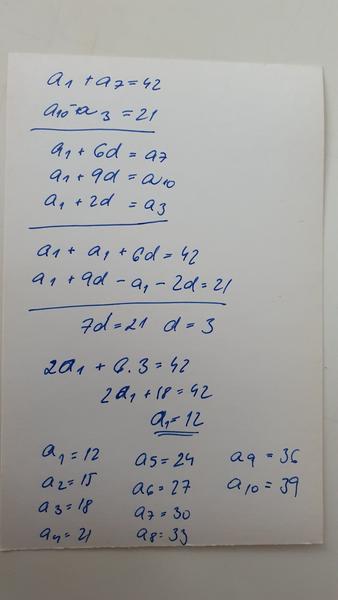 a1 + a7 = 42
a10 - a3 = 21
a1 + 6d = a7
a1 + 9d = a10
a1 + 2d = a3
a1 + a1 + 6d = 42
a1 + 9d - a1 - 2d = 21
7d = 21 d = 3
2a1 + 6.3 = 42
2a1 + 18 = 42
a1 = 12
a1 = 12 a5 = 24 a9 = 36
a2 = 15 a6 = 27 a10 = 39
a3 = 18 a7 = 30
a4 = 21 a8 = 33